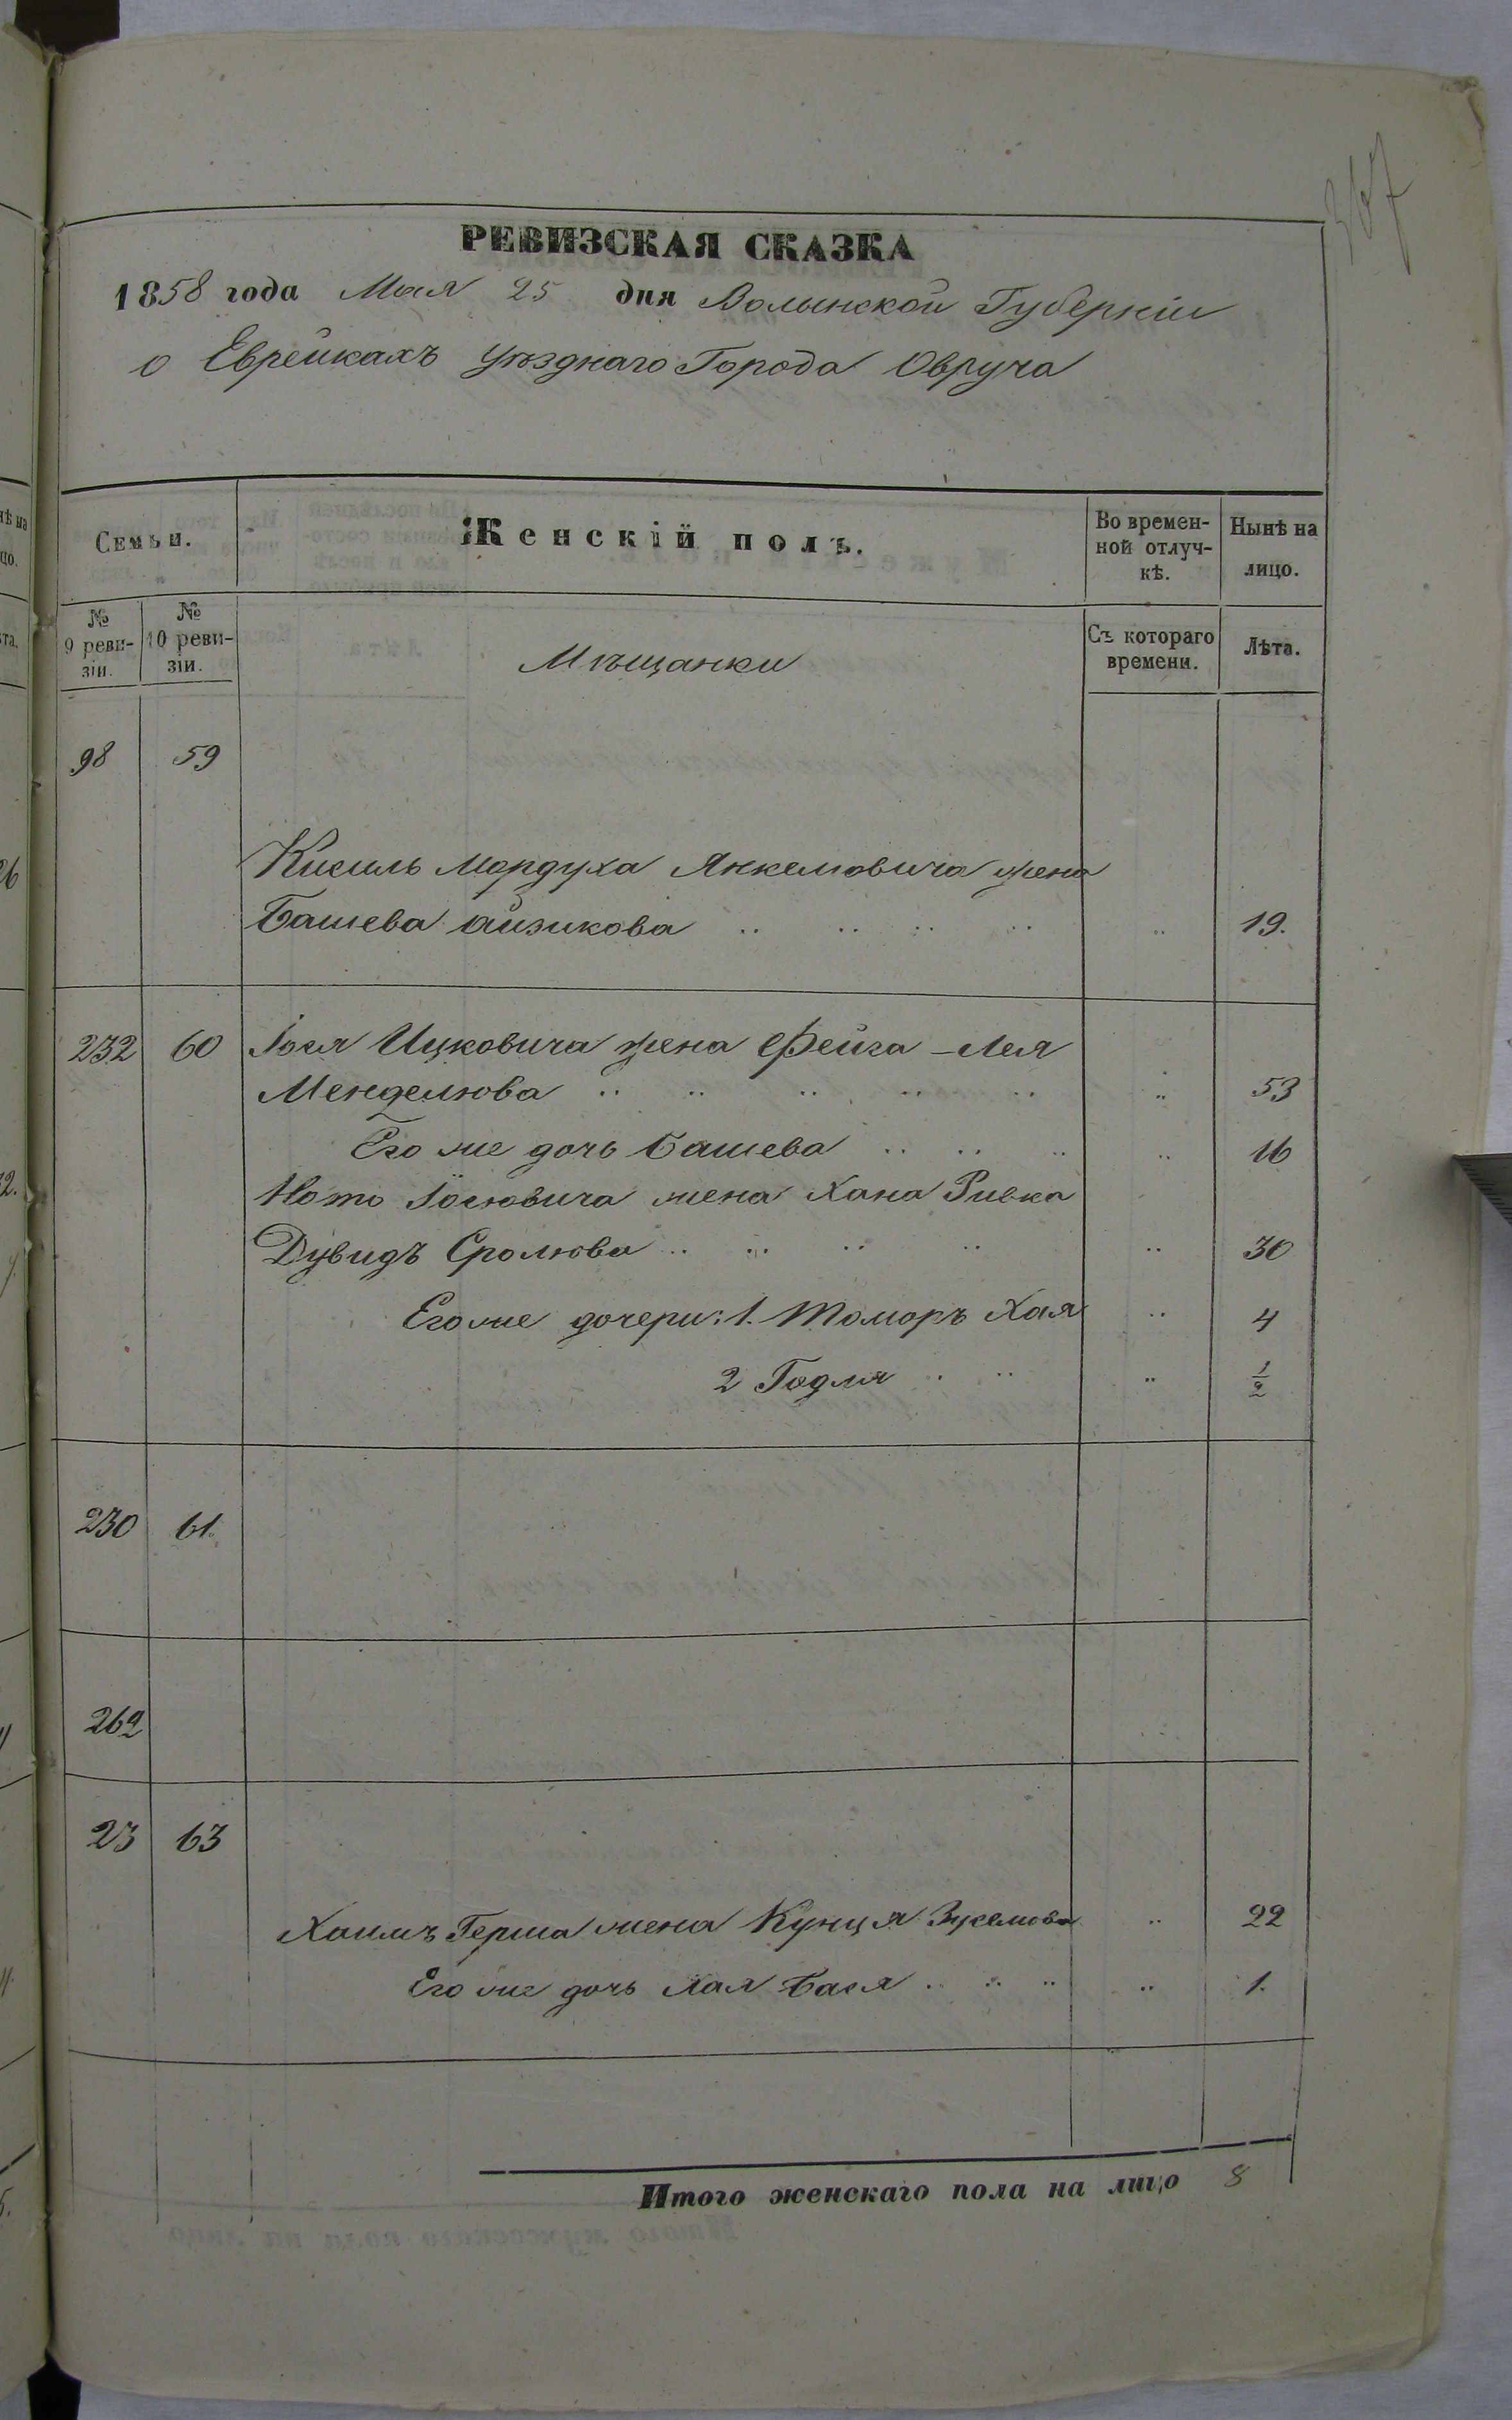 367
РЕВИЗСКАЯ СКАЗКА
1858 года Мая 25 дня Волынской Губерніи
о Еврейкахъ Уѣзднаго Города Овруча
Семьи.
Женскій полъ.
Во времен-
ной отлуч-
кѣ.
Нынѣ на
лицо.
№
9 реви-
зіи.
№
10 реви-
зіи.
Мѣщанки
Съ котораго
времени.
Лѣта.
98 59
Кисиль Мордуха Янкелиовича жена
Башева Айзикова 19.
232 60 Іося Ицковича жена Фейга-Лея
Менделюва 53
Его же дочь Башева 16
Ното Іосювича жена Хана Ривка
Дувидъ Сролюва 30
Его же дочери: 1. Томоръ Хая 4
2 Годля 1/2
230 61.
262
23 63
Хаимъ Герша жена Кунця Зуселиова 22
Его же дочь Хая Бася 1.
Итого женскаго пола на лицо 8